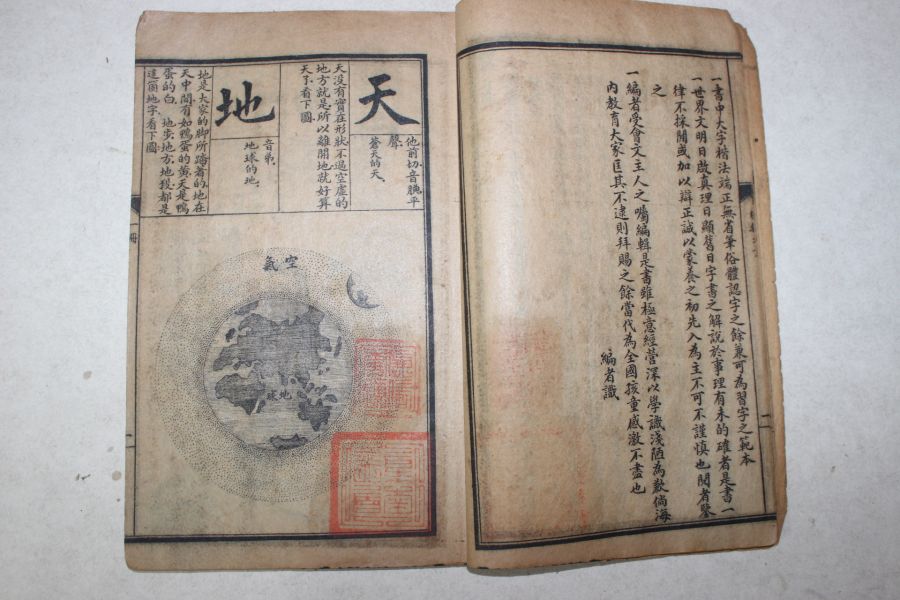 一書中大字楷法端正無省筆俗體認字之餘兼可為習字之範本
一世界文明日啟真理日顯舊日字書之解說於事理有未的確者是書一
律不採間或加以辯正誠以蒙養之初先入為主不可不謹慎也閱者鑒
之
一編者受會文主人之囑編輯是書雖極意經營深以學識淺陋為歉倘海
內教育大家匡其不逮則拜賜之餘當代為全國孩童感激不盡也
編者識
天
他前切音腆平
聲
蒼天的天
天沒有實在形狀不過空虛的
地方就是所以離開地就好算
天了看下圖
地
音弟
地球的地
地是大家的脚所蹐著的地在
天中間有如鴨蛋的黃天是鴨
蛋的白 地步地方地毯都是
這箇地字看下圖
空氣
地球
一冊
二
二